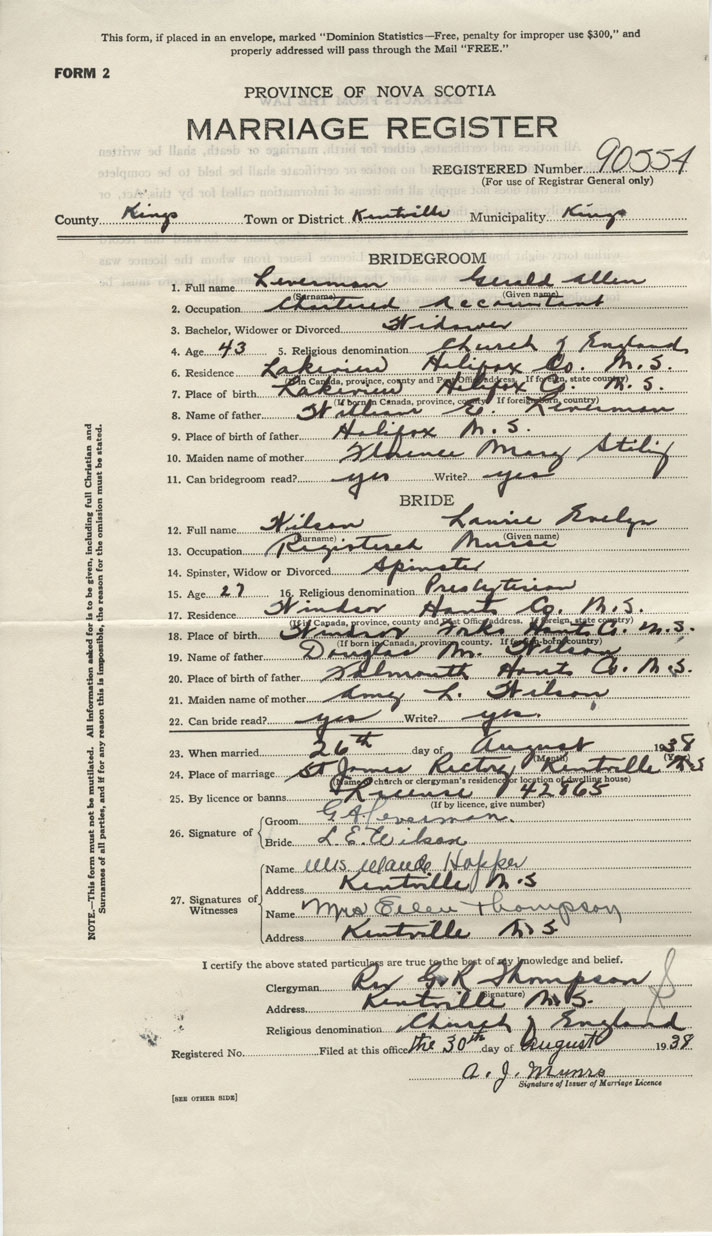 This form, if placed in an envelope, marked "Dominion Statistics—Free, penalty for improper use $300," and
properly addressed will pass through the Mail "FREE."
FORM 2
PROVINCE OF NOVA SCOTIA
MARRIAGE REGISTER
REGISTERED Number 90554
(For use of Registrar General only)
County Kings Town or District Kentville Municipality Kings
BRIDEGROOM
1. Full name Leverman Gerald Allen
(Surname) (Given name)
2. Occupation Chartered Accountant
3. Bachelor, Widower or Divorced Widower
4. Age 43 5. Religious denomination Church of England
6. Residence Lakeview Halifax Co. N.S.
(If in Canada, province, county and Post Office address. If foreign, state country)
7. Place of birth Lakeview Halifax Co. N.S.
(If born in Canada, province, county. If foreign born, country)
8. Name of father William E. Leverman
9. Place of birth of father Halifax N.S.
10. Maiden name of mother Florence Mary
11. Can bridegroom read? yes Write? yes
BRIDE
12. Full name Wilson Laurie Evelyn
(Surname) (Given name)
13. Occupation Registered Nurse
14. Spinster, Widow or Divorced Spinster
15. Age 27 16. Religious denomination Presbyterian
17. Residence Windsor Hants Co. N.S.
(If in Canada, province, county and Post Office address. If foreign, state country)
18. Place of birth Windsor Hants Co. N.S.
(If born in Canada, province, county. If foreign born country)
19. Name of father Douglas M. Wilson
20. Place of birth of father Falmouth Hants Co. N.S.
21. Maiden name of mother Amy L. Wilson
22. Can bride read? yes Write? yes.
23. When married 26th day of August 1938
(Month) (Year)
24. Place of marriage St James Rectory Kentville N.S
(Name of church or clergyman's residence or location of dwelling house)
25. By licence or banns License 42865
(If by licence, give number)
26. Signature of
Groom G A Leverman.
Bride L. E. Wilson
27. Signatures of Witnesses
Name Mrs Maude Hopper
Address Kentville N.S
Name Mrs Eileen Thompson
Address Kentville N.S
I certify the above stated particulars are true to the best of my knowledge and belief.
Clergyman Rev G. R Thompson
(Signature)
Address Kentville N.S.
Religious denomination Church of England
Registered No. Filed at this office the 30th day of August 1938
A. J. Munro
Signature of Issuer of Marriage Licence
[SEE OTHER SIDE]
NOTE.—This form must not be mutilated. All information asked for is to be given, including full Christian and
Surnames of all parties, and if for any reason this is impossible, the reason for the omission must be stated.